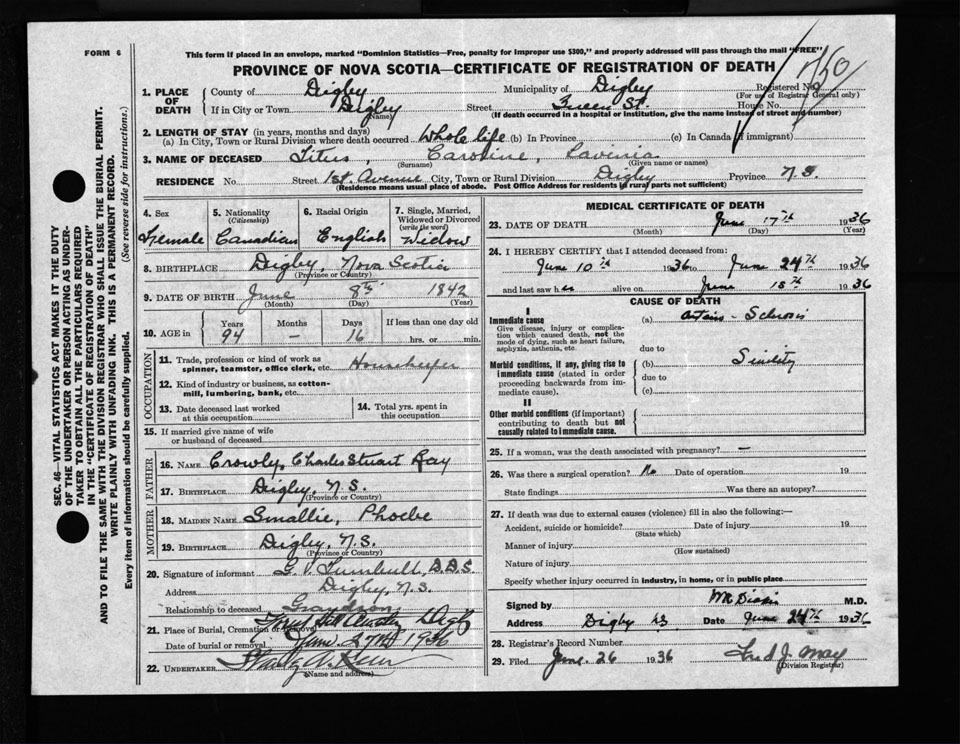 FORM 6
This form if placed in an envelope, marked "Dominion Statistics—Free, penalty for improper use $300," and properly addressed will pass through the mail "FREE"
PROVINCE OF NOVA SCOTIA—CERTIFICATE OF REGISTRATION OF DEATH
SEC. 46—VITAL STATISTICS ACT MAKES IT THE DUTY
OF THE UNDERTAKER OR PERSON ACTING AS UNDER-
TAKER TO OBTAIN ALL THE PARTICULARS REQUIRED
IN THE "CERTIFICATE OF REGISTRATION OF DEATH"
AND TO FILE THE SAME WITH THE DIVISION REGISTRAR WHO SHALL ISSUE THE BURIAL PERMIT.
WRITE PLAINLY WITH UNFADING INK. THIS IS A PERMANENT RECORD.
Every item of information should be carefully supplied. (See reverse side for instructions.)
1. PLACE OF DEATH County of Digby Municipality of Digby Registered No.
(For use of Registrar General only)
If in City or Town Digby (Name) Street Queen St. House No.
(If death occurred in a hospital or institution, give the name instead of street and number)
2. LENGTH OF STAY (in years, months and days)
(a) In City, Town or Rural Division where death occurred Whole life (b) In Province (c) In Canada (if immigrant)
3. NAME OF DECEASED Titus, Caroline, Lavinia
(Surname) (Given name or names)
RESIDENCE No. Street 1st. Avenue City, Town or Rural Division Digby Province N.S.
(Residence means usual place of abode. Post Office Address for residents in rural parts not sufficient)
4. Sex Female
5. Nationality (Citizenship) Canadian
6. Racial Origin English
7. Single, Married, Widowed or Divorced (write the word) Widow
8. BIRTHPLACE Digby, Nova Scotia
(Province or Country)
9. DATE OF BIRTH June 8th 1842
(Month) (Day) (Year)
10. AGE in Years 94 Months — Days 16 If less than one day old hrs. or min.
OCCUPATION
11. Trade, profession or kind of work as spinner, teamster, office clerk, etc. Housekeeper
12. Kind of industry or business, as cotton-mill, lumbering, bank, etc.
13. Date deceased last worked at this occupation
14. Total yrs. spent in this occupation
15. If married give name of wife or husband of deceased
FATHER
16. NAME Crowly, Charles Stuart Ray
17. BIRTHPLACE Digby, N.S.
(Province or Country)
MOTHER
18. MAIDEN NAME Smallie, Phoebe
19. BIRTHPLACE Digby, N.S.
(Province or Country)
20. Signature of informant G. V. Turnbull, D.D.S.
Address Digby, N.S.
Relationship to deceased Grandson
21. Place of Burial, Cremation or Removal Digby
Date of burial or removal June 1936
22. UNDERTAKER
(Name and address)
MEDICAL CERTIFICATE OF DEATH
23. DATE OF DEATH June 17th 1936
(Month) (Day) (Year)
24. I HEREBY CERTIFY that I attended deceased from:
June 10th 1936 to June 24th 1936
and last saw her alive on June 18th 1936
CAUSE OF DEATH
I
Immediate cause
Give disease, injury or complication which caused death, not the mode of dying, such as heart failure, asphyxia, asthenia, etc.
(a) Sclerosis
due to
Morbid conditions, if any, giving rise to immediate cause (stated in order proceeding backwards from immediate cause).
(b) Senility
due to
(c)
II
Other morbid conditions (if important) contributing to death but not causally related to immediate cause.
25. If a woman, was the death associated with pregnancy? —
26. Was there a surgical operation? No Date of operation 19
State findings Was there an autopsy?
27. If death was due to external causes (violence) fill in also the following:—
Accident, suicide or homicide? Date of injury 19
(State which)
Manner of injury
(How sustained)
Nature of injury
Specify whether injury occurred in industry, in home, or in public place
Signed by M.D.
Address Digby NS Date June 24th 1936
28. Registrar's Record Number
29. Filed June 26 1936 May
(Division Registrar)